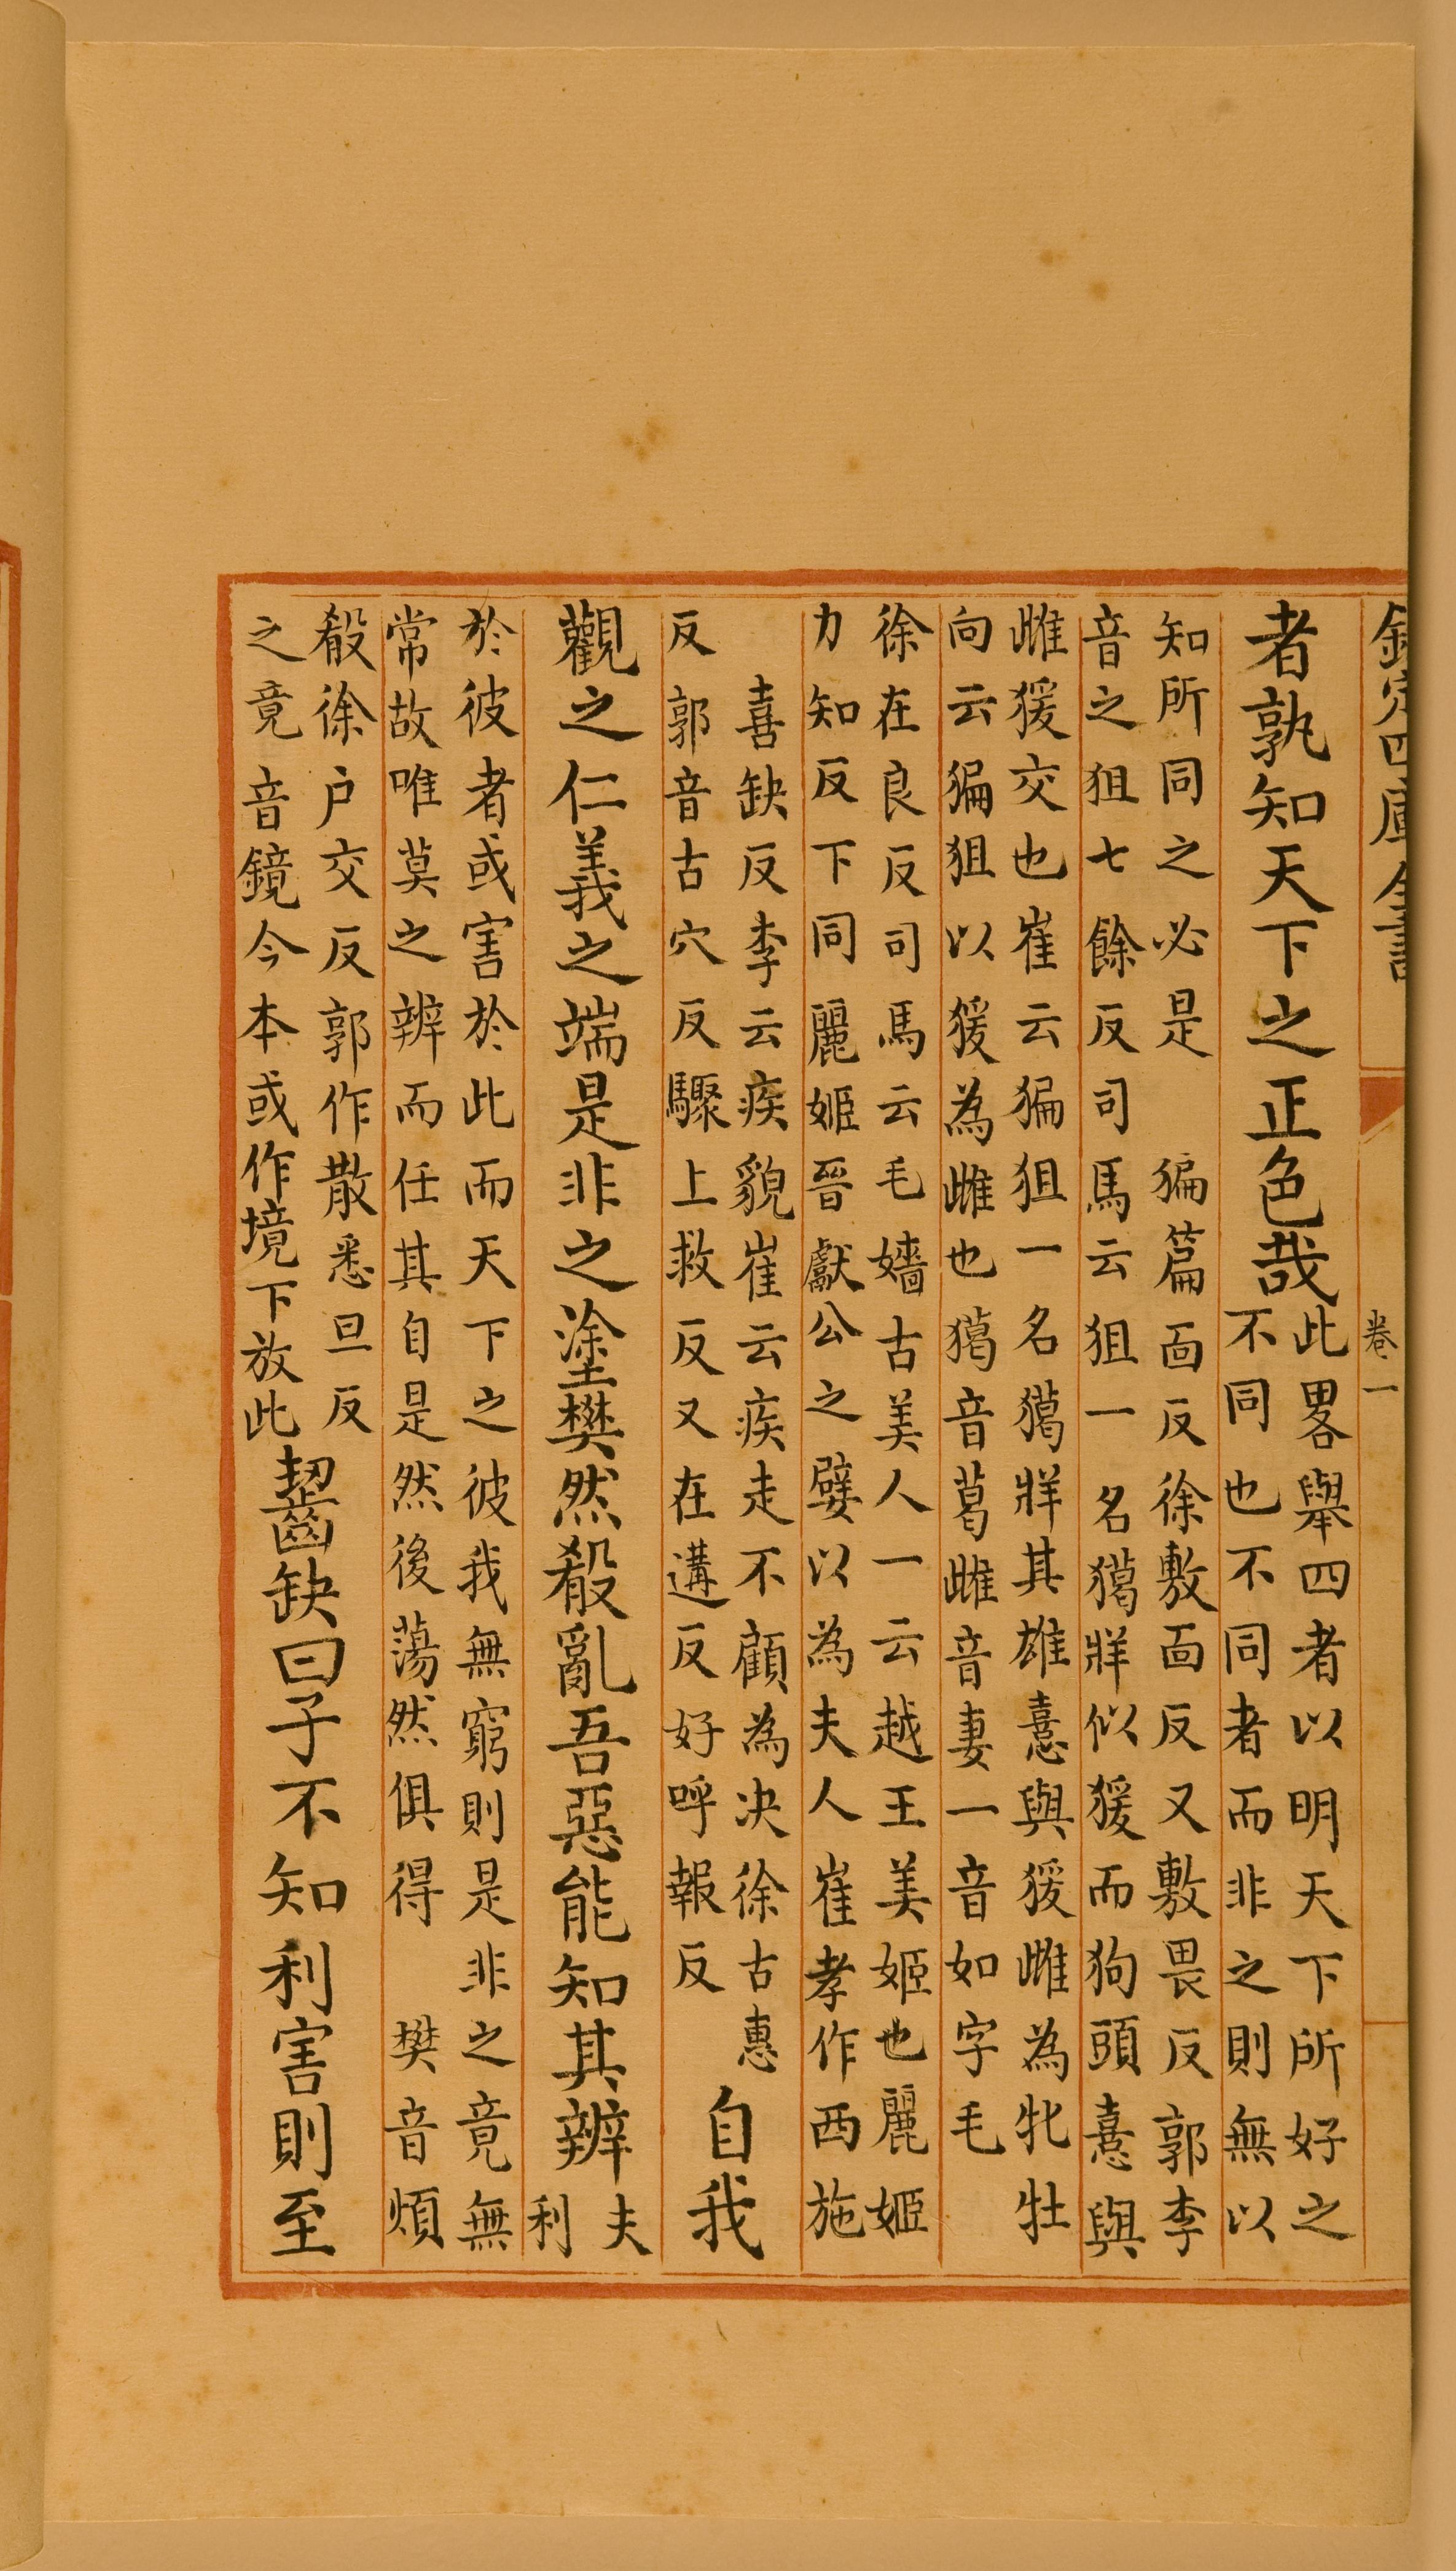 欽定四庫全書
卷一
者孰知天下之正色哉此畧舉四者以明天下所好之
不同也不同者而非之則無以
知所同之必是 猵篇面反徐敷面反又敷畏反郭李
音之狙七餘反司馬云狙一名獦牂似猨而狗頭憙與
雌猨交也崔云猵狙一名獦牂其雄憙與猨雌為牝牡
向云猵狙以猨為雌也獦音葛雌音妻一音如字毛
徐在良反司馬云毛嬙古美人一云越王美姬也麗姬
力知反下同麗姬晉獻公之嬖以為夫人崔孝作西施
喜缺反李云疾貌崔云疾走不顧為决徐古惠
反郭音古穴反驟上救反又在遘反好呼報反
自我
觀之仁義之端是非之塗樊然殽亂吾惡能知其辨夫
利
於彼者或害於此而天下之彼我無窮則是非之竟無
常故唯莫之辨而任其自是然後蕩然俱得 樊音煩
殽徐户交反郭作散悉旦反
之竟音鏡今本或作境下放此
齧缺曰子不知利害則至